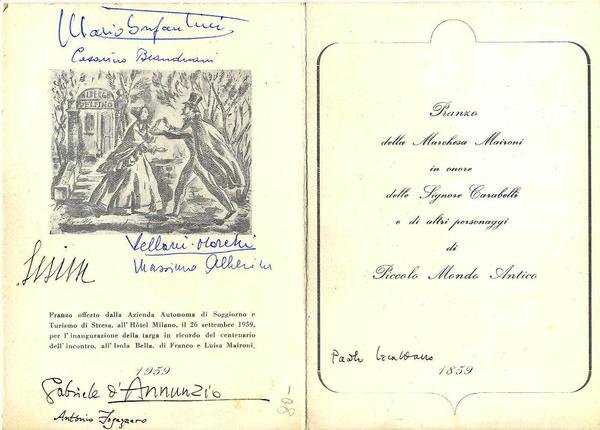 Mario Bonfantini
Cesarino Branduani
ALBERGO
DELFINO
Vellani-Marchi
Massimo Alberini
Pranzo offerto dalla Azienda Autonoma di Soggiorno e
Turismo di Stresa, all'Hôtel Milano, il 26 settembre 1959,
per l'inaugurazione della targa in ricordo del centenario
dell'incontro, all'Isola Bella, di Franco e Luisa Maironi.
1959
Gabriele d'Annunzio
Antonio Fogazzaro
Pranzo
della Marchesa Maironi
in onore
delle Signore Carabelli
e di altri personaggi
di
Piccolo Mondo Antico
Paolo Lecaldano
1859